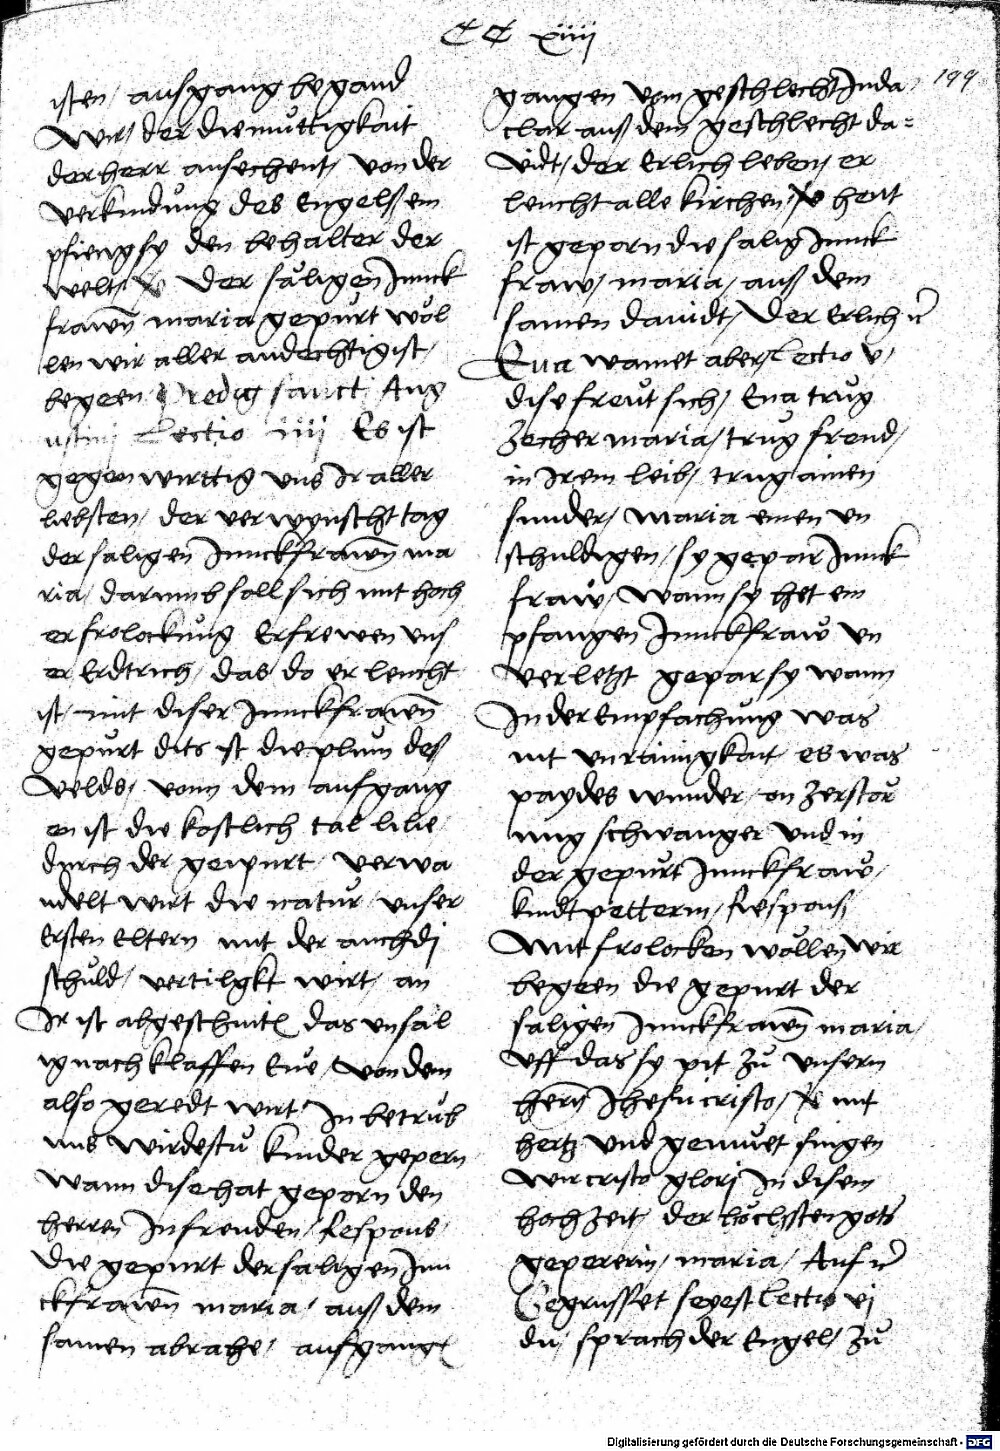 CC xiiij
199
isten / aufgang begand
Wir / der diemuttigkait
der herr ansechent / von der
verkundung des Engelss em
pfieng sy den behalter der
welt / der säligen Junck
frawen maria gepurt wöl
len wir aller andechtigist /
begeen Predig sanct Aug
ustini Lectio iiij Es ist
gegenwirttig uns Ir aller
liebsten / der verwunscht tag
der saligen Junckfrawen ma
ria / darumb soll sich mit hoch
er frolockung Erfrewen uns
er Erdtrich / das do erleucht
ist / mit diser Junckfrawen
gepurt dits ist die plum des
velds / vonn dem aufgang
en ist die kostlich tal lilie
durch der gepurt / verwa
ndelt wirt die natur / unser
Ersten Eltern mit der auch di
schuld / vertilgkt wirt / an
Ir ist abgeschnitt das unsal
ig nachklaffen Eve / von dem
also geredt wirt In betrub
nus wirdestu kinder gepern
wann dise hat geporn den
herren In freuden / Respons /
Die gepurt der saligen Jun
ckfrawen maria / auss dem
samen abrahe / aufgang
gangen vom geschlecht Juda /
clar auss dem geschlecht da=
vidt / der Erlich leben / er
leucht alle kirchen / heut
ist geporn die salig Junck
fraw / maria / auss dem
samen dauidt / Der Erlich
Eua wainet aber Lectio v /
dise freut sich / Eua trug
Zecher maria / trug freud /
in Irem leib / trug ainen
sunder / maria einen un
schuldigen / sy gepar Junck
fraw / Wann sy het em
pfangen Junckfraw un
verletzt gepar sy wann
In der Empfachung was
nit unrainigkait es was
paydes wunder / on Zerstör
ung schwanger und in
der gepurt Junckfraw /
kindtpetterin / Respons
Mit frolocken wöllen wir
begeen die gepurt der
saligen Junckfrawen maria /
Uff das sy pit zu unsern
herrn Jhesu cristo / mit
hertz und gemuet singen
wir cristo glorj In disem
hochzeit / der höchsten gots
gepererin / maria / Auf
Gegrusset seyest Lectio vj
du / sprach der Engel / zu
Digitalisierung gefördert durch die Deutsche Forschungsgemeinschaft - DFG